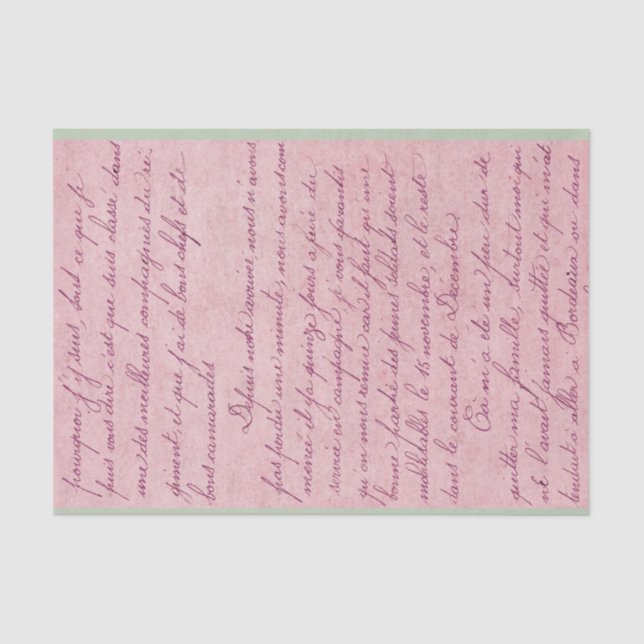 pourquoi j'y suis, tout ce que je
puis vous dire c'est que suis classé dans
une des meilleures compagnies du ré-
giment, et que j'ai de bons chefs et de
bons camarades
Depuis notre arrivée, nous n'avons
pas perdu une minute, nous avons com
mencé il y a quinze jours apiré du
service en campagne je vous garantis
qu'on nous remue car il faut qu'une
bonne partie des jeunes soldats soient
mobilisables le 15 novembre, et le reste
dans le courant de Décembre
Ça m'a été un peu dur de
quitter ma famille, surtout moi qui
ne l'avait jamais quittée et qui m'at
tendait à aller à Bordeaux ou dans